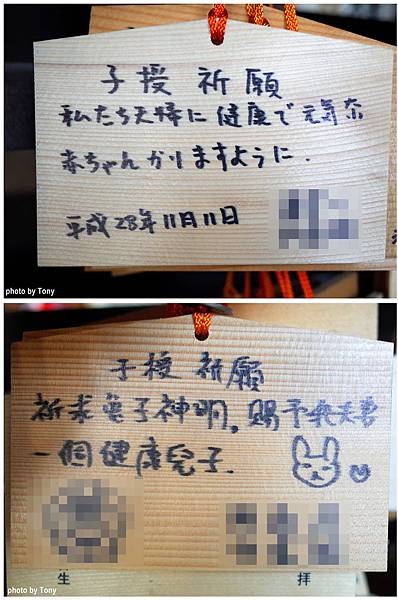 子授 祈願
私たち夫婦に健康で元気奈
赤ちゃんかりますように.
平成28年11月11日
photo by Tony
子授 祈願
祈求兔子神明。賜予我夫妻
一個健康兒子.
生 拝
photo by Tony